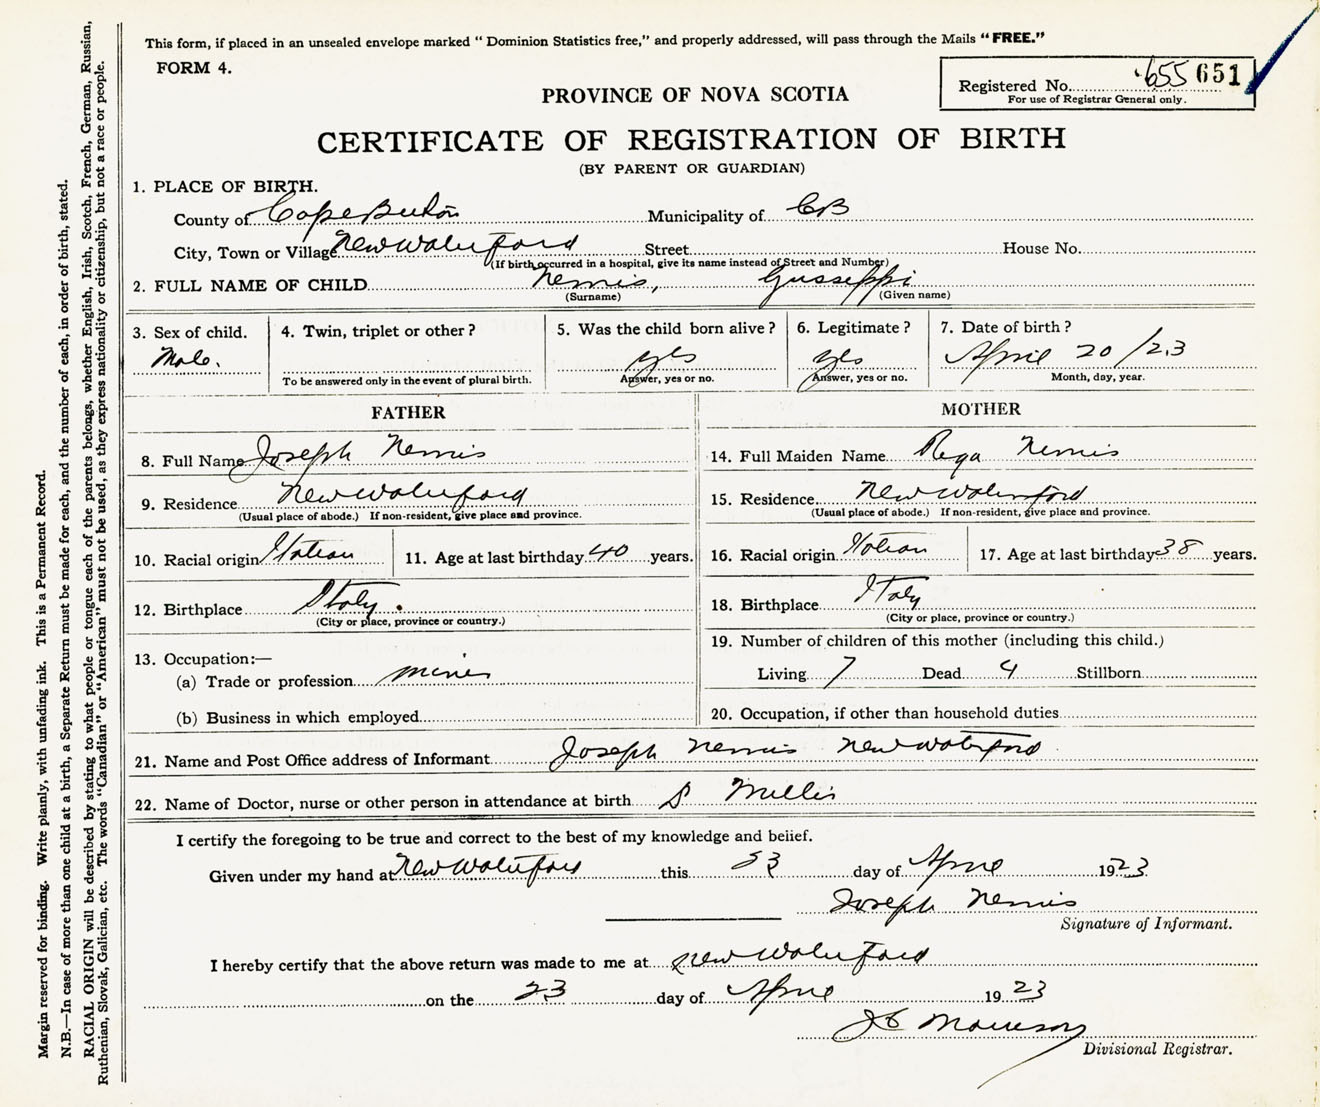 This form, if placed in an unsealed envelope marked “ Dominion Statistics free,” and properly addressed, will pass through the Mails “FREE.”
FORM 4.
Registered No. 655 651
For use of Registrar General only.
PROVINCE OF NOVA SCOTIA
CERTIFICATE OF REGISTRATION OF BIRTH
(BY PARENT OR GUARDIAN)
1. PLACE OF BIRTH.
County of Cape Breton Municipality of CB
City, Town or Village New Waterford Street House No.
(If birth occurred in a hospital, give its name instead of Street and Number)
2. FULL NAME OF CHILD Nemis, Gusseppi
(Surname) (Given name)
3. Sex of child. 4. Twin, triplet or other? 5. Was the child born alive? 6. Legitimate? 7. Date of birth?
Male. yes yes April 20/23
To be answered only in the event of plural birth. Answer, yes or no. Answer, yes or no. Month, day, year.
FATHER MOTHER
8. Full Name Joseph Nemis 14. Full Maiden Name Nemis
9. Residence New Waterford 15. Residence New Waterford
(Usual place of abode.) If non-resident, give place and province. (Usual place of abode.) If non-resident, give place and province.
10. Racial origin Italian 11. Age at last birthday 40 years. 16. Racial origin Italian 17. Age at last birthday 38 years.
12. Birthplace Italy. 18. Birthplace Italy
(City or place, province or country.) (City or place, province or country.)
13. Occupation:— 19. Number of children of this mother (including this child.)
(a) Trade or profession miner Living 7 Dead 4 Stillborn
(b) Business in which employed 20. Occupation, if other than household duties
21. Name and Post Office address of Informant Joseph Nemis New Waterford
22. Name of Doctor, nurse or other person in attendance at birth
I certify the foregoing to be true and correct to the best of my knowledge and belief.
Given under my hand at New Waterford this 23 day of April 1923
Joseph Nemis
Signature of Informant.
I hereby certify that the above return was made to me at New Waterford
on the 23 day of April 1923
Divisional Registrar.
Margin reserved for binding. Write plainly, with unfading ink. This is a Permanent Record.
N.B.—In case of more than one child at a birth, a Separate Return must be made for each, and the number of each, in order of birth, stated.
RACIAL ORIGIN will be described by stating to what people or tongue each of the parents belongs, whether English, Irish, Scotch, French, German, Russian,
Ruthenian, Slovak, Galician, etc. The words “Canadian” or “American” must not be used, as they express nationality or citizenship, but not a race or people.